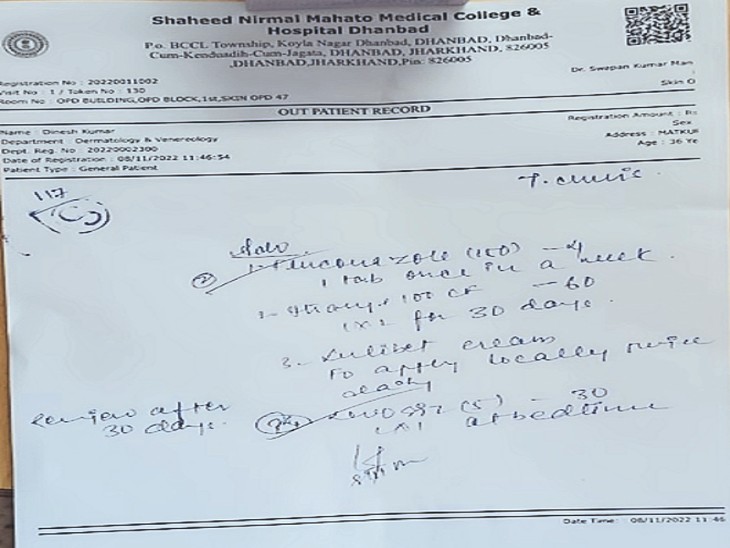 Shaheed Nirmal Mahato Medical College &
Hospital Dhanbad
P.o. BCCL Township, Koyla Nagar Dhanbad, DHANBAD, Dhanbad-
Cum-Kenduadih-Cum-Jagata, DHANBAD, JHARKHAND, 826005
,DHANBAD,JHARKHAND,Pin: 826005
Registration No : 20220311002
Dr. Swapan Kumar Man
Visit No : 1 / Token No : 130
Skin O
Room No : OPD BUILDING,OPD BLOCK,1st,SKIN OPD 47
OUT PATIENT RECORD
Name : Dinesh Kumar
Registration Amount : Rs
Department : Dermatology & Venereology
Sex
Dept. Reg. No : 20220002300
Address : MATKUR
Date of Registration : 08/11/2022 11:46:54
Age : 36 Ye
Patient Type : General Patient
117
T.
Adv
1. Fluconazole (150) - 4
1 tab once in a week.
2. 100 - 60
1x2 for 30 days.
3. cream
To apply locally twice
Review after
30 days.
(5) - 30
1x1 at bedtime
Date Time: 08/11/2022 11:46